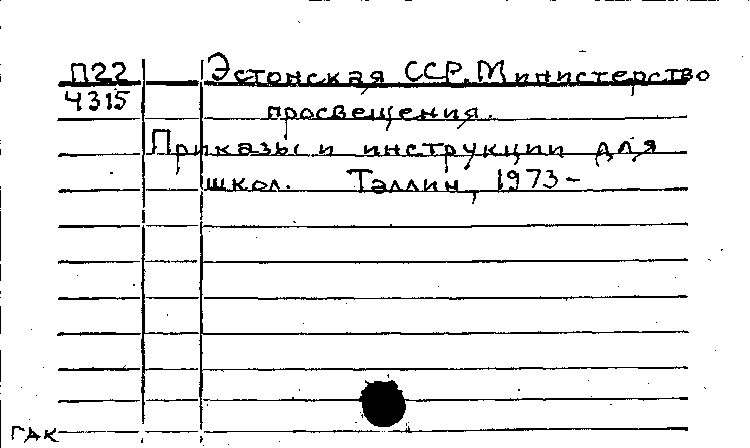 П22 Эстонская ССР. Министерство
4315 просвещения.
Приказы и инструкции для
школ. Таллин, 1973-
ГАК